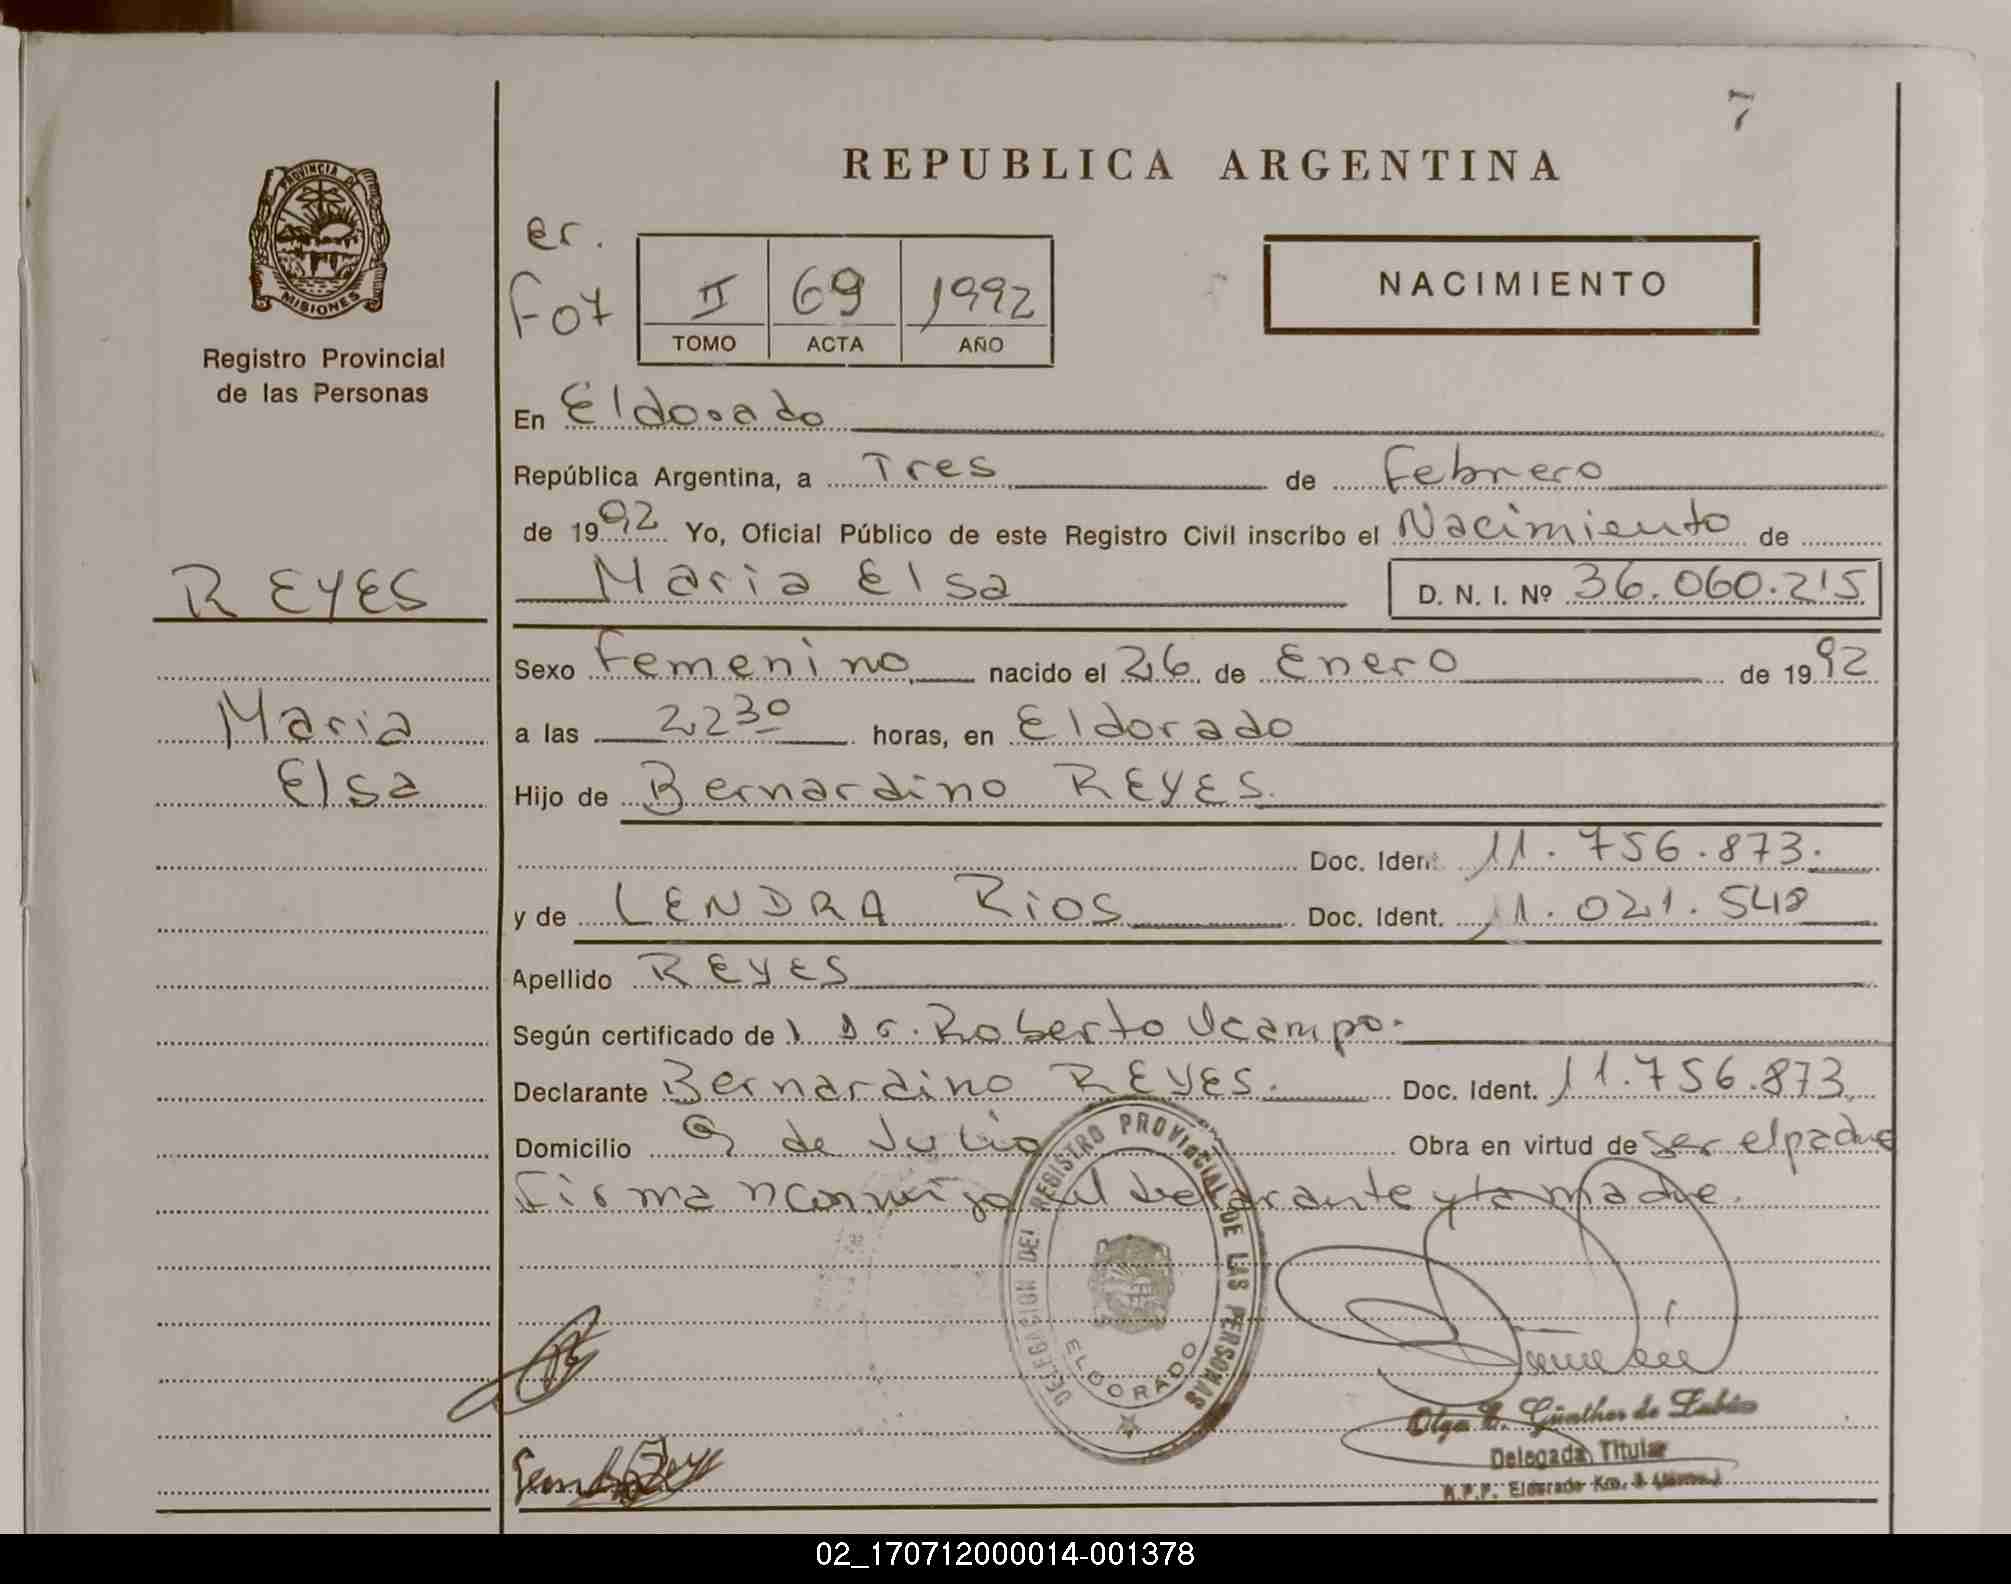 7
REPUBLICA ARGENTINA
PROVINCIA DE
MISIONES
Registro Provincial
de las Personas
er.
Fo7
II 69 1992
TOMO ACTA AÑO
NACIMIENTO
En Eldorado
República Argentina, a Tres de Febrero
de 1992 Yo, Oficial Público de este Registro Civil inscribo el Nacimiento de
Maria Elsa D. N. I. Nº 36.060.215
REYES
Maria
Elsa
Sexo Femenino nacido el 26 de Enero de 1992
a las 2230 horas, en Eldorado
Hijo de Bernardino REYES.
Doc. Ident 11.756.873.
y de LENDRA Rios Doc. Ident. 11.021.548
Apellido REYES
Según certificado de l Dr. Roberto Ocampo.
Declarante Bernardino REYES. Doc. Ident. 11.756.873
Domicilio 9 de Julio Obra en virtud de ser el padre
Firma n conmigo el declarante y la madre.
DELEGACION DEL REGISTRO PROVINCIAL DE LAS PERSONAS
ELDORADO
Olga E. Günther de
Delegada Titular
R.P.P. Eldorado Km.
02_170712000014-001378